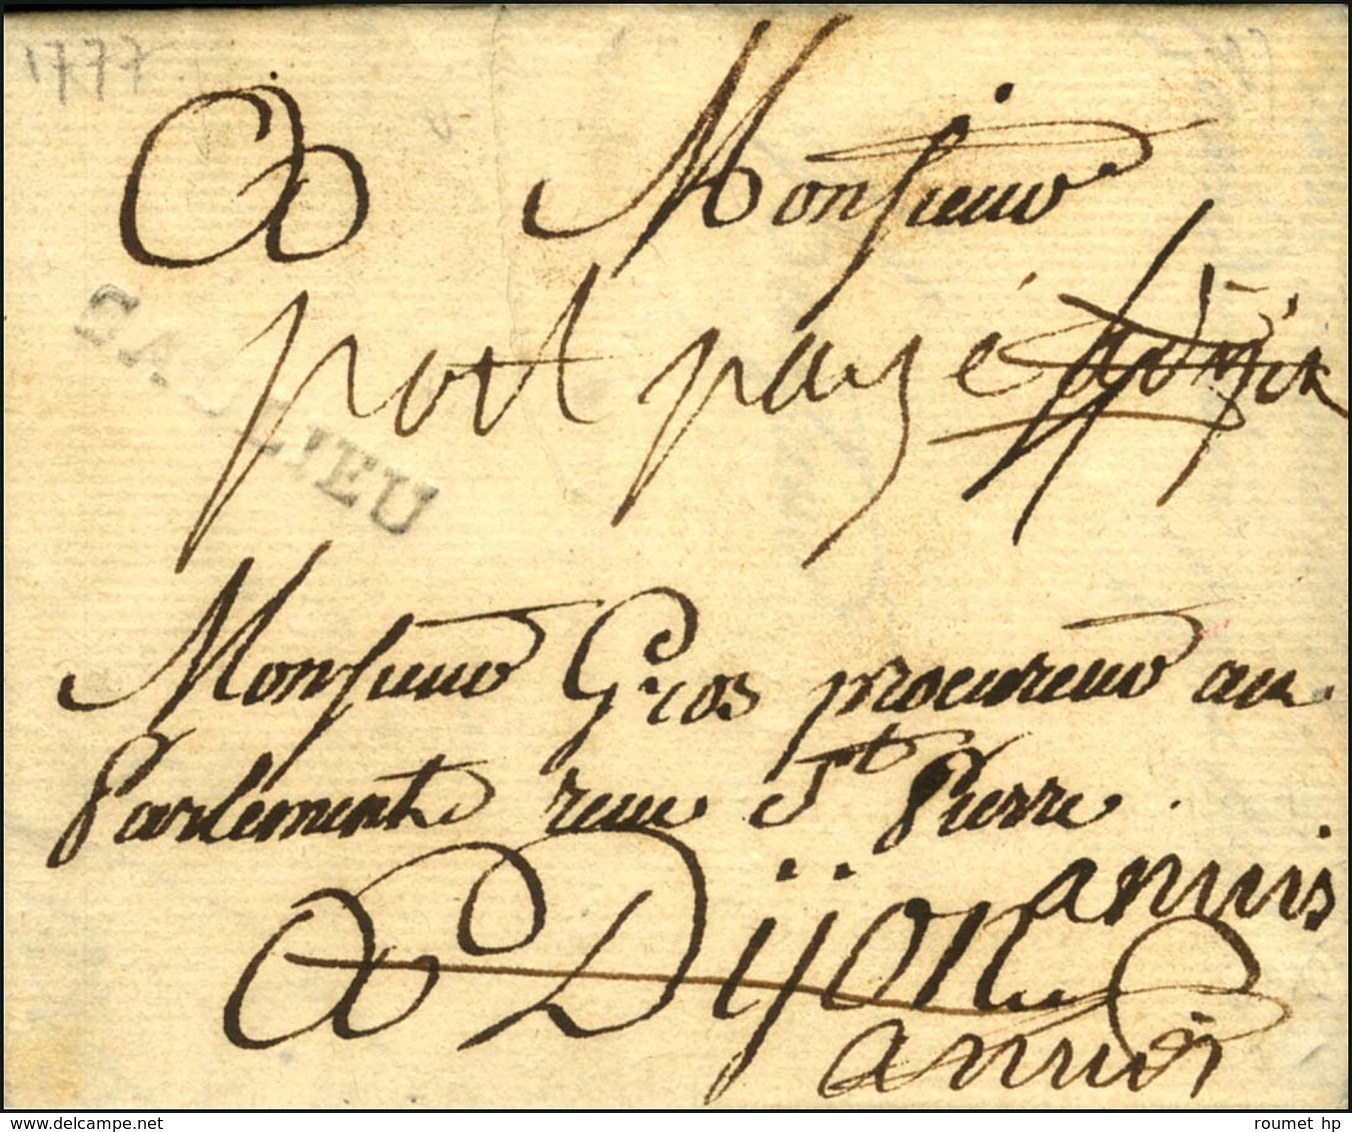 1777
A Monsieur
port payé
LIEU
Monsieur Gros procureur au
Parlement rue St Pierre
A Dijon
www.delcampe.net
roumet hp